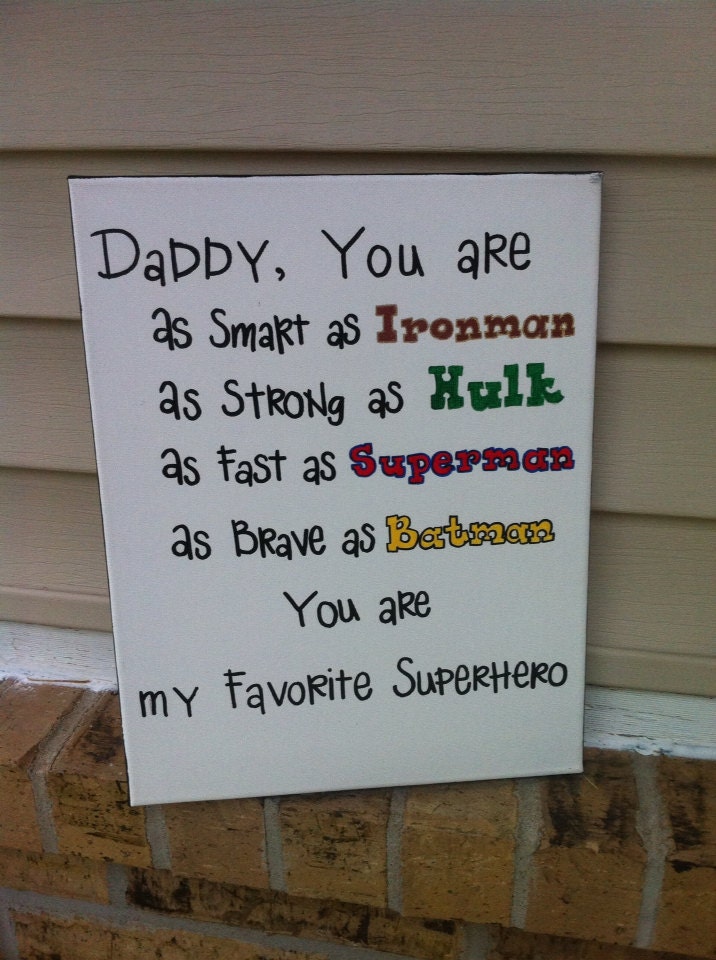 DaDDY, You aRe
as SmaRt as Ironman
as StRONg as Hulk
as Fast as Superman
as BRave as Batman
You aRe
my FavoRite SuPeRHeRo